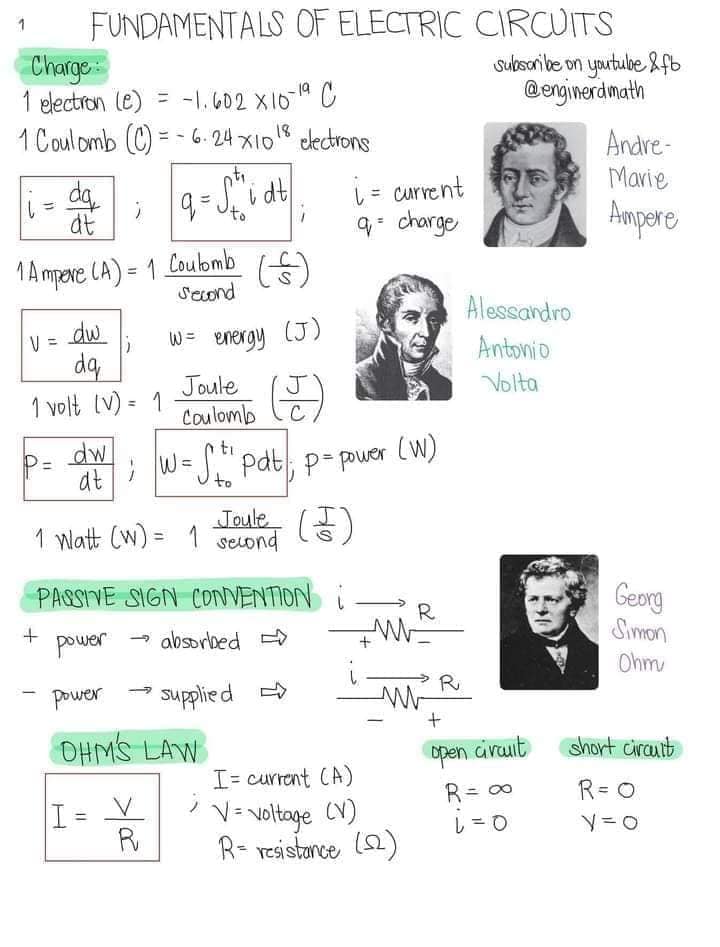 1
FUNDAMENTALS OF ELECTRIC CIRCUITS
Charge:
subscribe on youtube & fb
@enginerdmath
1 electron (e) = -1.602 x 10^-19 C
1 Coulomb (C) = - 6.24 x 10^18 electrons
Andre-
Marie
Ampere
i = dq/dt ; q = ∫_{t₀}^{t₁} i dt ; i = current
q = charge
1 Ampere (A) = 1 Coulomb/Second (C/S)
Alessandro
Antonio
Volta
V = dw/dq ; w = energy (J)
1 volt (V) = 1 Joule/Coulomb (J/C)
P = dw/dt ; W = ∫_{t₀}^{t₁} pdt ; p = power (W)
1 Watt (W) = 1 Joule/second (J/S)
PASSIVE SIGN CONVENTION
i → R
+ −
+ power → absorbed ⇨
i → R
− +
− power → supplied ⇨
Georg
Simon
Ohm
OHM'S LAW
I = V/R ; I = current (A)
V = voltage (V)
R = resistance (Ω)
open circuit
R = ∞
i = 0
short circuit
R = 0
V = 0